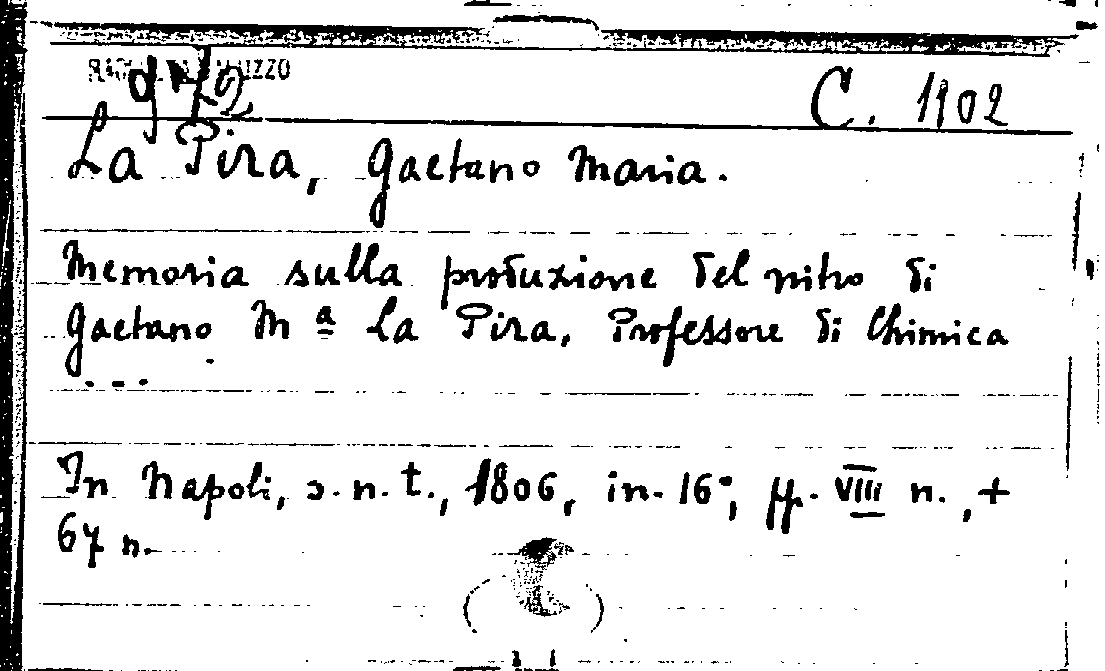 C. 1902
La Pira, Gaetano Maria.
Memoria sulla produzione del nitro di
Gaetano Mª La Pira, Professore di Chimica
....
In Napoli, s. n. t., 1806, in-16°, pp. VIII n., +
67 n.